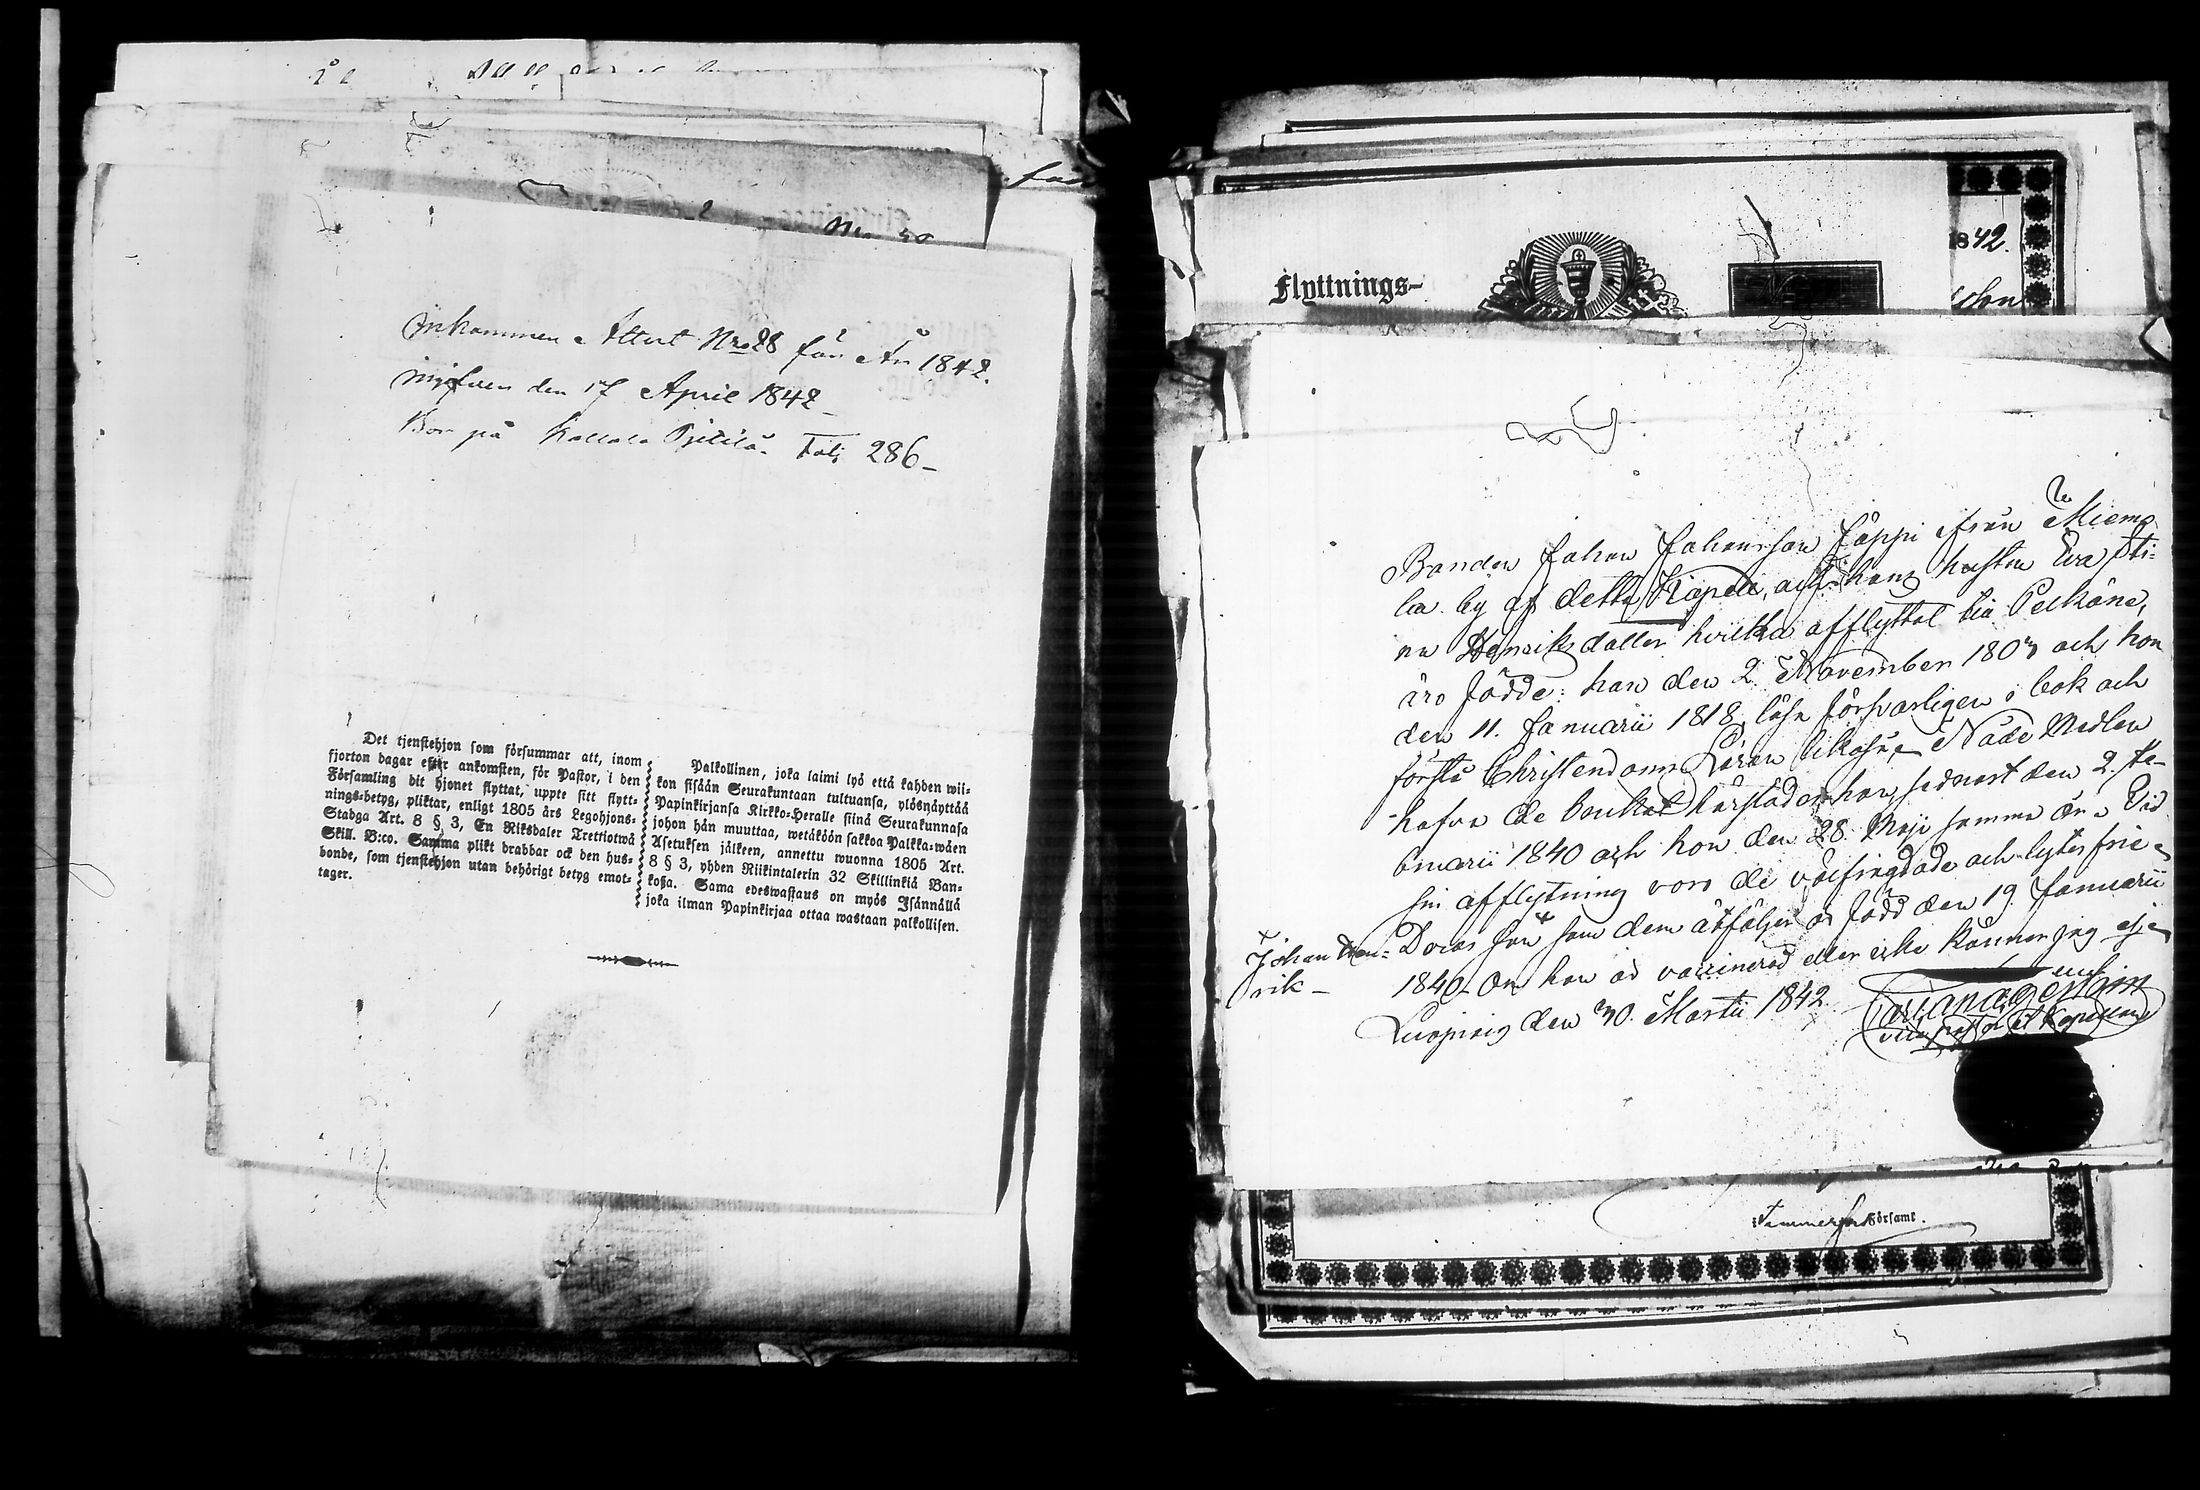 Inkommen Attest Nro 28 för År 1842.
ingifven den 17 April 1842
Bor på Kallala Pjiltlä. Fol: 286
Det tjenstehjon som försummar att, inom
fjorton dagar efter ankomsten, för Pastor, i den
Församling dit hjonet flyttat, uppte sitt flytt-
nings-betyg, pliktar, enligt 1805 års Legohjons-
Stadga Art. 8 § 3, En Riksdaler Trettiotwå
Skill. B:co. Samma plikt drabbar ock den hus-
bonde, som tjenstehjon utan behörigt betyg emot-
tager.
Palkollinen, joka laimi lyö että kahden wii-
kon sisään Seurakuntaan tultuansa, ylösnäyttää
Papinkirjansa Kirkko-Heralle siinä Seurakunnasa
johon hän muuttaa, wetäköön sakkoa Palkka-wäen
Asetuksen jälkeen, annettu wuonna 1805 Art.
8 § 3, yhden Riikintalerin 32 Skillinkiä Ban-
koßa. Sama edeswastaus on myös Isännällä
joka ilman Papinkirjaa ottaa wastaan palkollisen.
Flyttnings-
1842.
Bonden Johan Johansson Jäppi från Miemo
la by af detta Kapell, och hans hustru Eva Sti-
na Henriksdotter hvilka afflyttat till Pelkäne,
äro födde: han den 2 November 1807 och hon
den 11. Januarii 1818, läsa försvarligen i bok och
förstå Christendoms Läran
hafva de brukat härstädes han sednast den 2. Fe-
bruarii 1840 och hon den 28 Maji samma år. Vid
sin afflyttning voro de välfrägdade och lytesfrie
Deras son som dem åtföljer är född den 19. Januarii
Johan Hen-
rik
1840. Om han är vaccinerad eller icke känner jag ej.
Luopiois den 30. Martii 1842.
Tammerfors Församl.